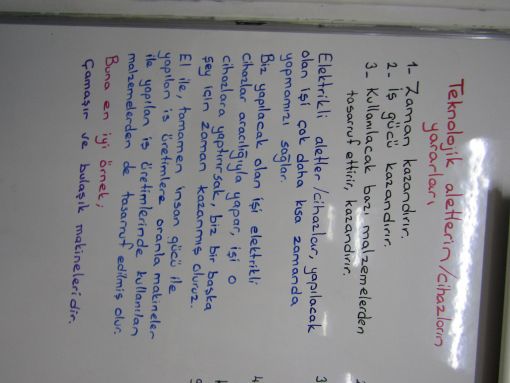 Teknolojik aletlerin/cihazların
yararları
1- Zaman kazandırır.
2- İş gücü kazandırır.
3- Kullanılacak bazı malzemelerden
tasarruf ettirir, kazandırır.
Elektrikli aletler/cihazlar, yapılacak
olan işi çok daha kısa zamanda
yapmamızı sağlar.
Biz yapılacak olan işi elektrikli
cihazlar aracılığıyla yapar, işi o
cihazlara yaptırırsak, biz bir başka
şey için zaman kazanmış oluruz.
El ile, tamamen insan gücü ile
yapılan iş üretimlere oranla makineler
ile yapılan iş üretimlerinde kullanılan
malzemelerden de tasarruf edilmiş olur.
Buna en iyi örnek;
Çamaşır ve bulaşık makineleridir.
3
4